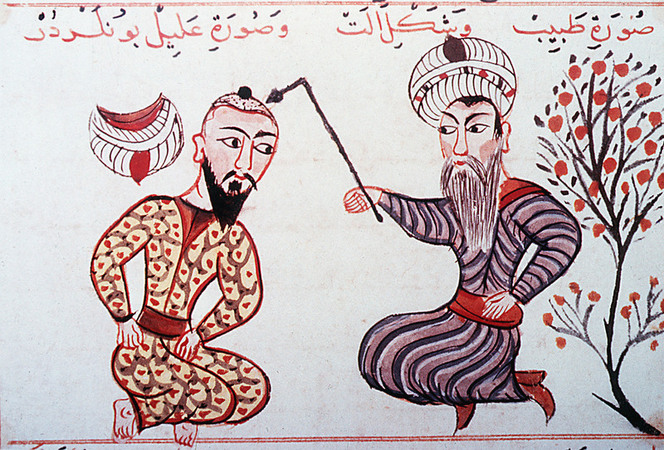 صُورَةِ طَبِيبْ وَشَكْلِ اٰلَتْ وَصُورَةِ عَلِيلْ بُونْلَرْدُرْ